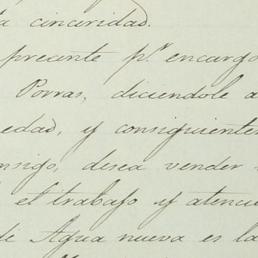 a cincuridad.
precente pr. encargo
Porras, diciendole a
edad, y consiguiente
nsigo, desea vender
el trabajo y atenci
de Agua nueva es la